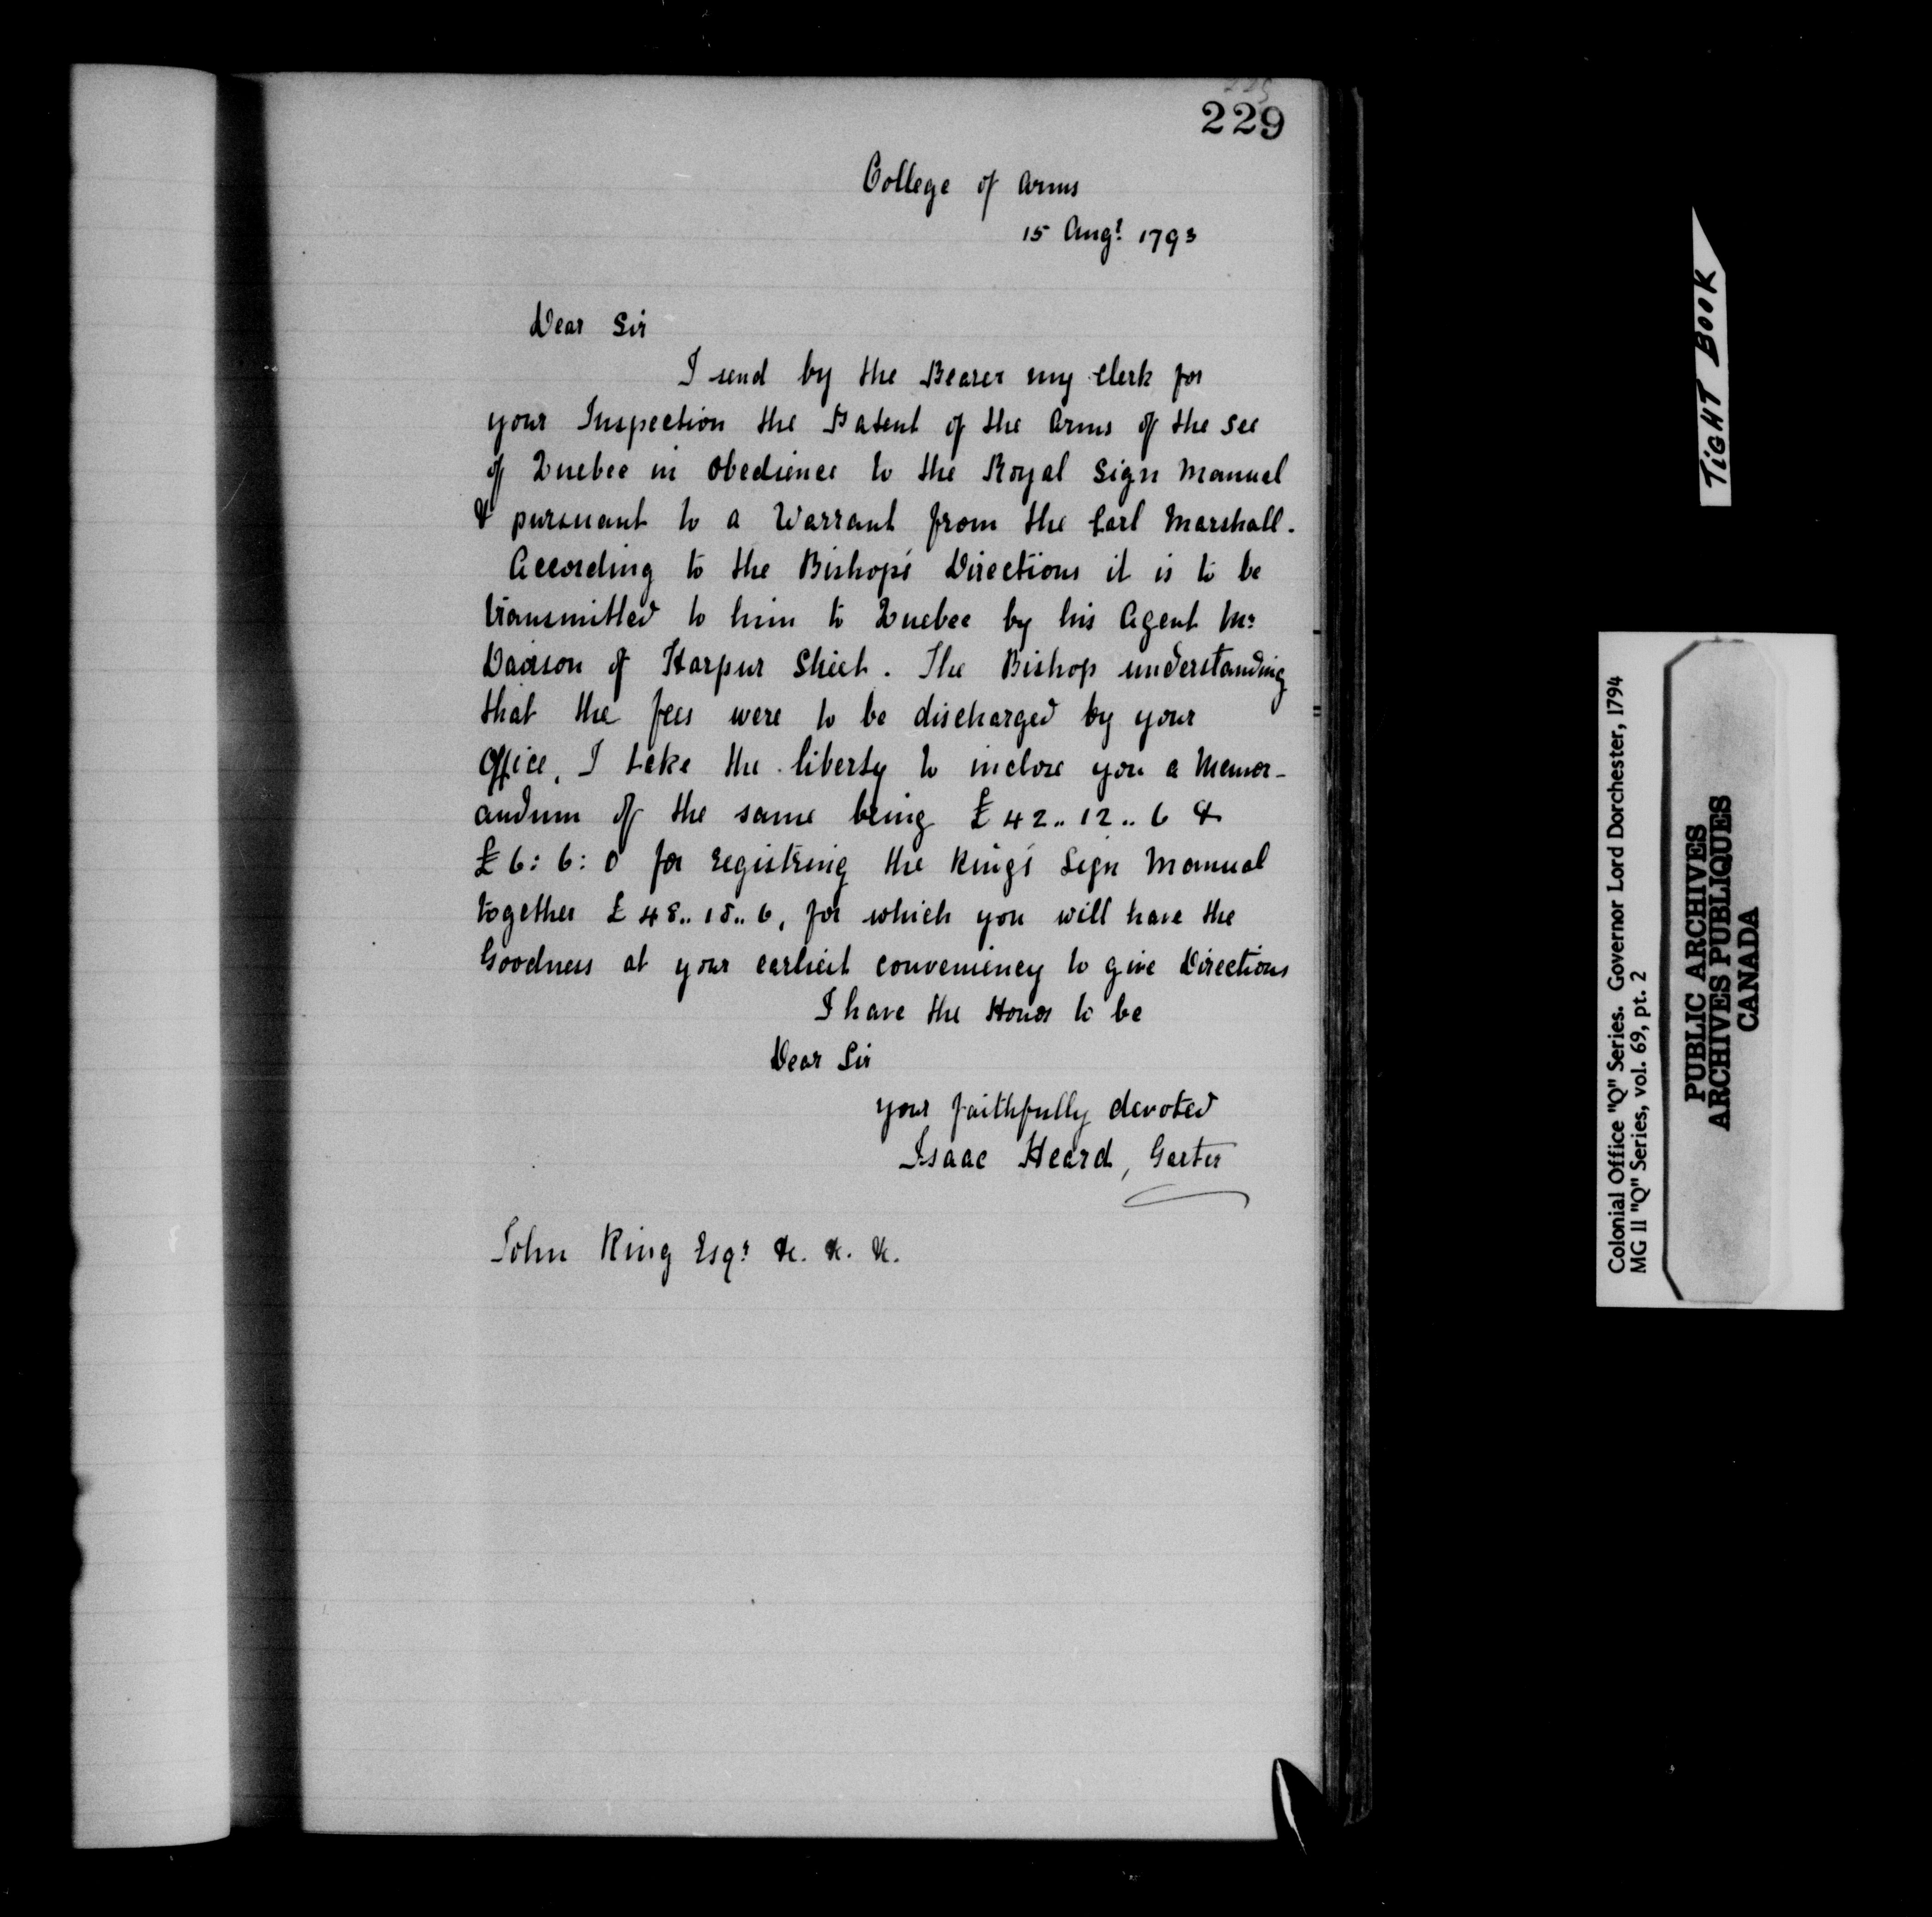 229
College of Arms
15 Augt 1793
Dear Sir
I send by the Bearer my Clerk for
your Inspection the Patent of the Arms of the See
of Quebec in Obedience to the Royal Sign Manual
& pursuant to a Warrant from the Earl Marshall.
According to the Bishop's Directions it is to be
transmitted to him to Quebec by his Agent Mr
of Harpur Street. The Bishop understanding
that the fees were to be discharged by your
Office, I take the liberty to inclose you a Memor-
andum of the same being £42..12..6 &
£6:6:0 for registring the King's Sign Manual
together £48..18..6, for which you will have the
Goodness at your earliest conveniency to give Directions
I have the Honor to be
Dear Sir
your faithfully devoted
Isaac Heard, Garter
John King Esqr &c. &c. &c.
TIGHT BOOK
Colonial Office "Q" Series. Governor Lord Dorchester, 1794
MG 11 "Q" Series, vol. 69, pt. 2
PUBLIC ARCHIVES
ARCHIVES PUBLIQUES
CANADA